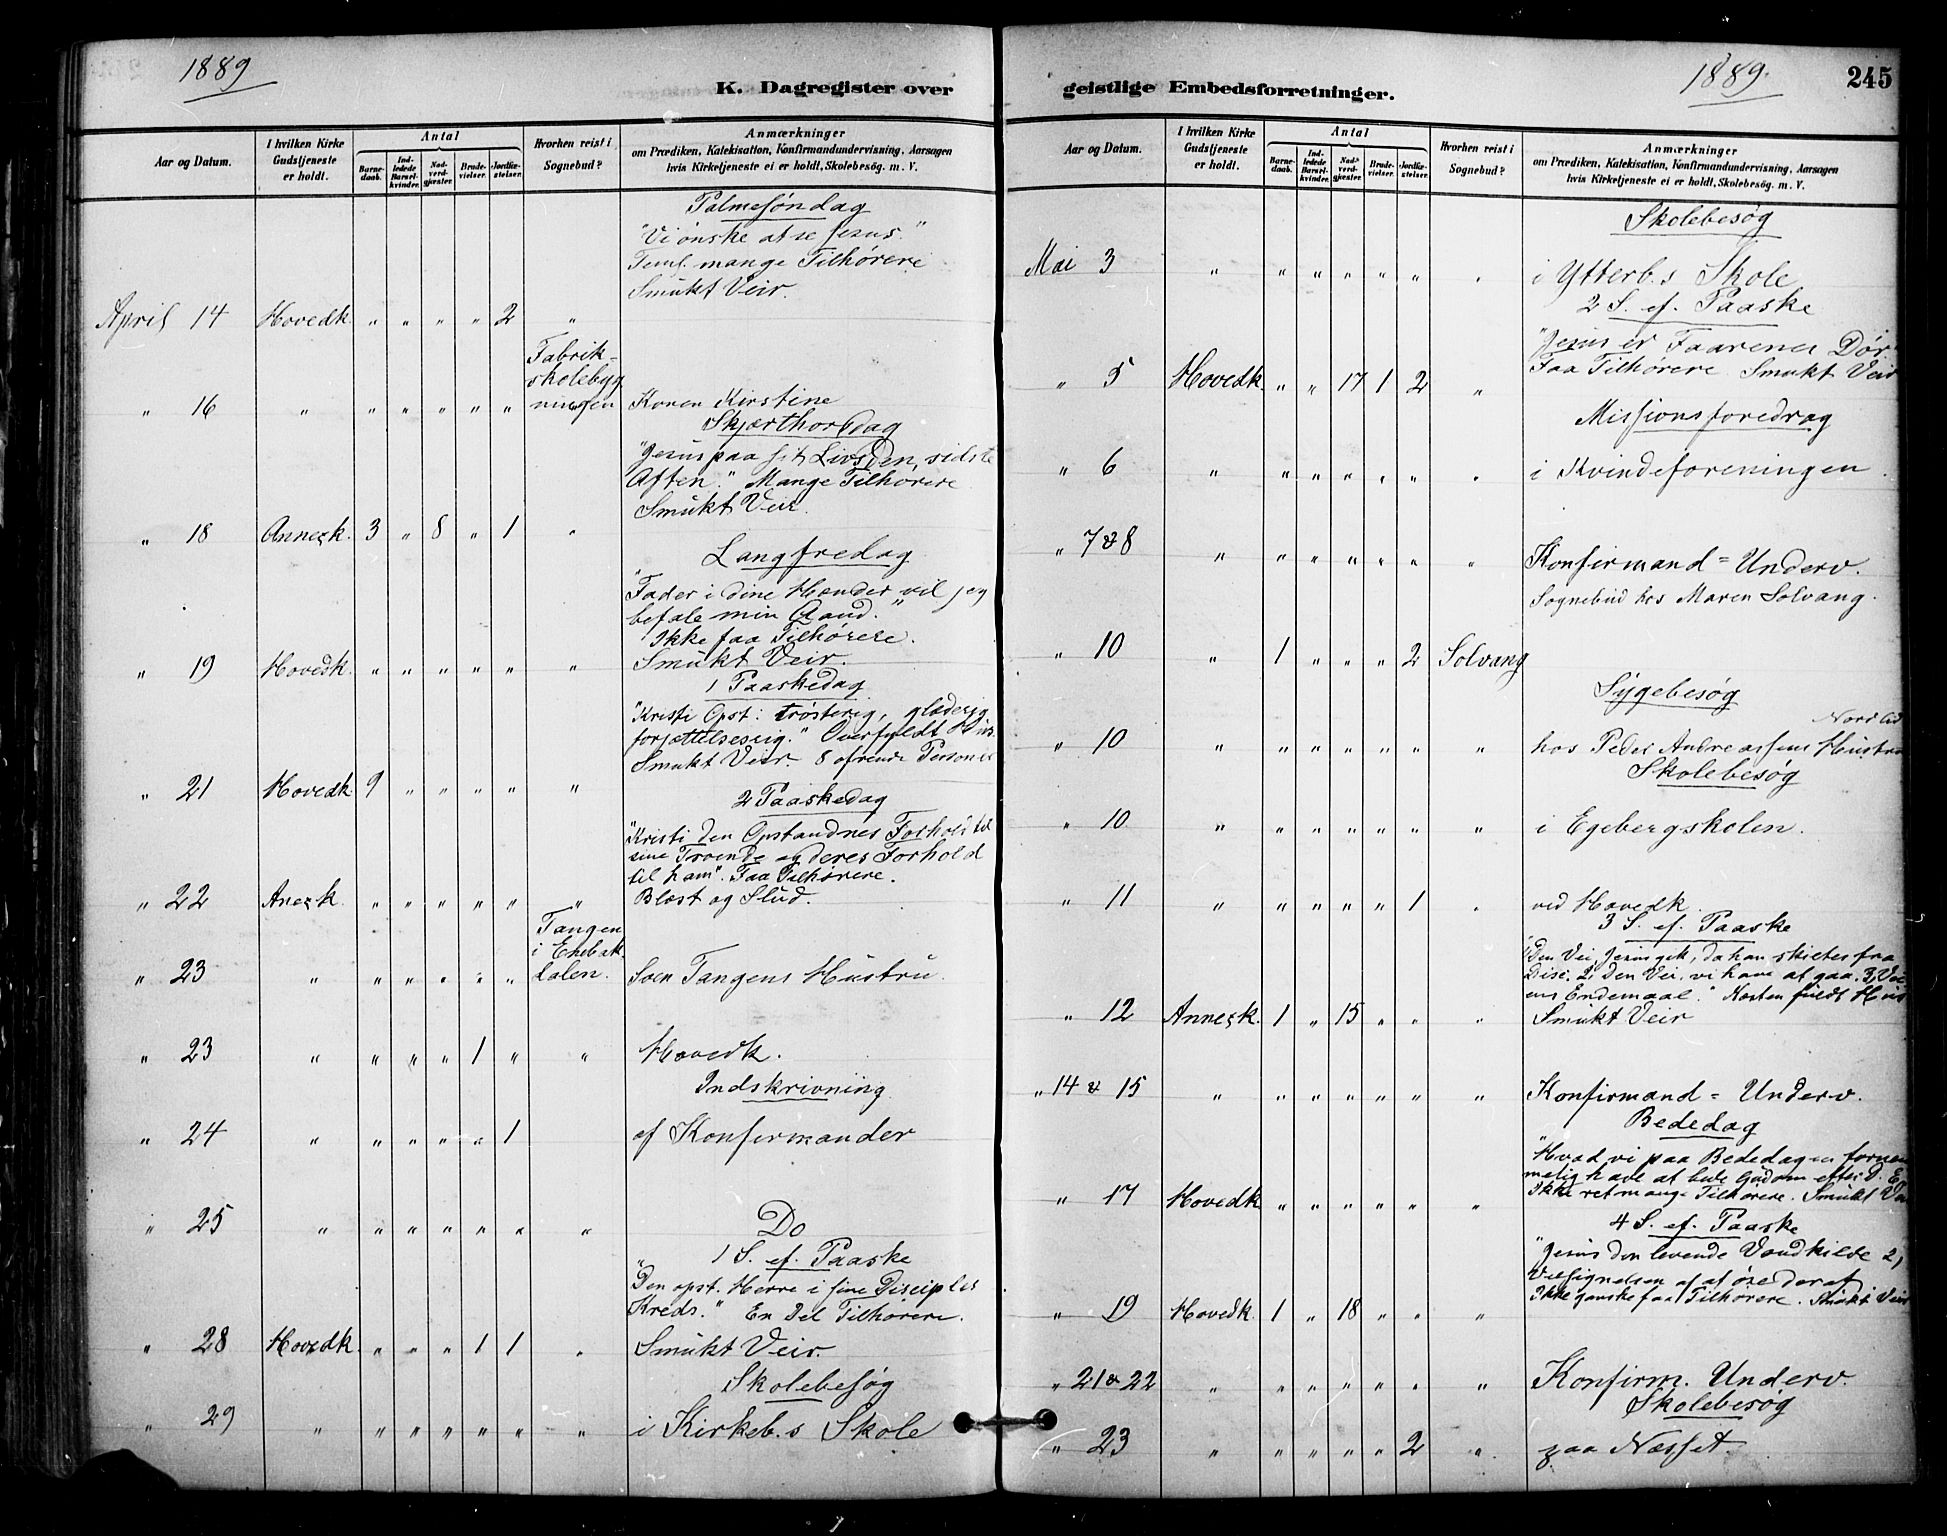 1889
K. Dagregister over
Aar og Datum.
I hvilken Kirke
Gudstjeneste
er holdt.
Antal
Barne-
daab.
Ind-
ledede
Barsel-
kvinder.
Nad-
verd-
gjæster.
Brude-
vielser.
Jordfæ-
stelser.
Hvorhen reist i
Sognebud?
Anmærkninger
om Prædiken, Katekisation, Konfirmandundervisning, Aarsagen
hvis Kirketjeneste ei er holdt, Skolebesøg. m. V.
Palmesøndag
"Vi ønske at se Jesus."
Teml. mange Tilhørere
Smukt Veir.
April 14 Hovedk. " " " " 2 "
Fabrik-
skolebyg
ningen
" 16 " " " " " " Karen Kirstine
Skjærthorsdag
"Jesus paa sit Livs den sidste
Aften." Mange Tilhørere
Smukt Veir.
" 18 Annexk. 3 " 8 " 1 "
Langfredag
"Fader i dine Hænder vil jeg
befale min Aand."
Ikke faa Tilhørere.
" 19 Hovedk. " " " " " " Smukt Veir.
1 Paaskedag
"Kristi Opst: trøsterig, glæderig
forjættelsesrig." Overfyldt Hus.
Smukt Veir. 8 ofrende Personer
" 21 Hovedk. 9 " " " " "
2 Paaskedag
"Kristi den Opstandnes Forhold til
sine Troende og deres Forhold
til ham". Faa Tilhørere.
" 22 Anexk. " " " " " " Blæst og Slud.
Tangen
i Enebak
dalen.
" 23 " " " " " " Soen Tangens Hustru.
" 23 " " " " 1 " " Hovedk.
Indskrivning
" 24 " " " " " 1 af Konfirmander
" 25 " " " " " " " Do
1 S. ef. Paaske
"Den opst. Herre i sine Disciples
Kreds." En Del Tilhørere.
" 28 Hovedk. " " " 1 1 " Smukt Veir.
Skolebesøg
" 29 " " " " " " " i Kirkeb.s Skole
geistlige Embedsforretninger.
1889.
245
Aar og Datum.
I hvilken Kirke
Gudstjeneste
er holdt.
Antal
Barne-
daab.
Ind-
ledede
Barsel-
kvinder.
Nad-
verd-
gjæster.
Brude-
vielser.
Jordfæ-
stelser.
Hvorhen reist i
Sognebud?
Anmærkninger
om Prædiken, Katekisation, Konfirmandundervisning, Aarsagen
hvis Kirketjeneste ei er holdt, Skolebesøg. m. V.
Skolebesøg
Mai 3 " " " " " " " i Ytterb.s Skole
2 S. ef. Paaske
"Jesus er Faarenes Dør.
" 5 Hovedk. " " 17 1 2 " Faa Tilhørere Smukt Veir
Missionsforedrag
" 6 " " " " " " " i Kvindeforeningen.
" 7 & 8 " " " " " " " Konfirmand = Underv.
Sognebud hos Maren Solvang.
" 10 " 1 " " " 2 Solvang
Sygebesøg
" 10 " " " " " " " hos Peder Andreassens Hustru
Skolebesøg
" 10 " " " " " " " i Egebergskolen.
" 11 " " " " " 1 " ved Hovedk.
3 S. ef. Paaske
"Den Vei, Jesus gik, da han skiltes fra
Disc. 2, Den Vei, vi have at gaa. 3, Vei
ens Endemaal." Næsten fuldt Hus
" 12 Annexk. 1 " 15 " " " Smukt Veir
" 14 & 15 " " " " " " " Konfirmand = Underv.
Bededag
"Hvad vi paa Bededagen fornem
melig have at bede Gud om efter D. Ep
" 17 Hovedk. " " " " " " Ikke ret mange Tilhørere. Smukt Veir
4 S. ef. Paaske
"Jesus den levende Vandkilde 2,
Velsignelsen af at øse deraf
" 19 Hovedk. 1 " 18 " " " Ikke ganske faa Tilhørere. Smukt Veir
" 21 & 22 " " " " " " " Konfirm. Underv.
Skolebesøg
" 23 " " " " " 2 " paa Næsset.